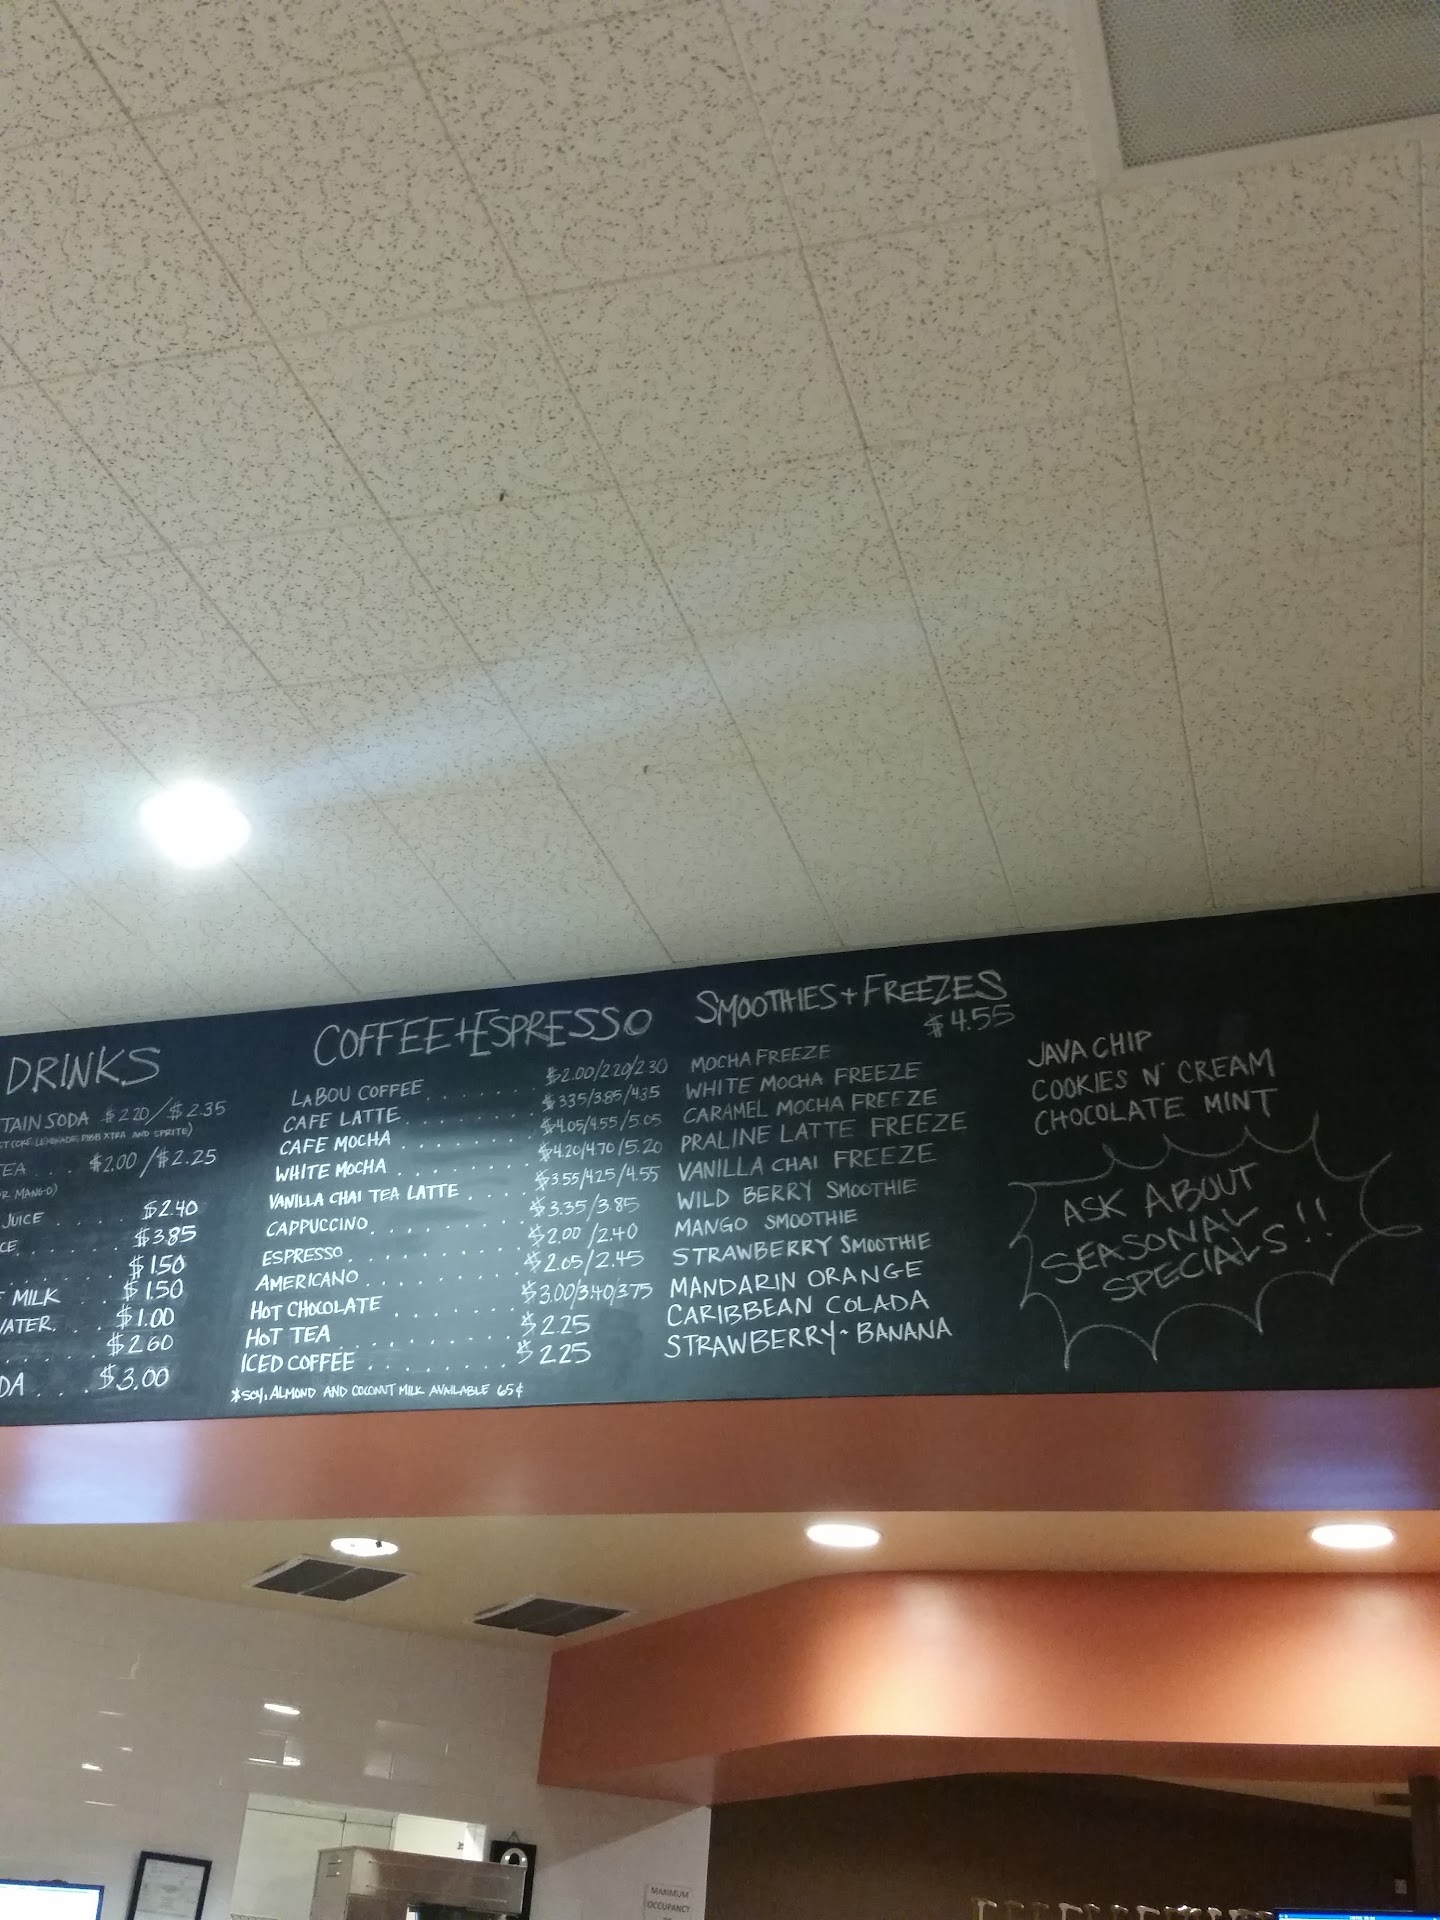 DRINKS
TAIN SODA $2.20/$2.35
LEMONADE, PIBB XTRA AND SPRITE)
TEA . . . $2.00/$2.25
OR MANGO)
JUICE . . . . . $2.40
CE . . . . . $3.85
. . . . . $1.50
MILK . . $1.50
WATER. . . $1.00
. . . . . $2.60
DA . . . $3.00
COFFEE+ESPRESSO
LABOU COFFEE . . . . . . $2.00/2.20/2.30
CAFE LATTE . . . . . . . $3.35/3.85/4.35
CAFE MOCHA . . . . . . . $4.05/4.55/5.05
WHITE MOCHA . . . . . . . $4.20/4.70/5.20
VANILLA CHAI TEA LATTE . . . . $3.55/4.25/4.55
CAPPUCCINO . . . . . . . . $3.35/3.85
ESPRESSO . . . . . . . . $2.00/2.40
AMERICANO . . . . . . . . $2.05/2.45
HOT CHOCOLATE . . . . . . . $3.00/3.40/3.75
HOT TEA . . . . . . . . $2.25
ICED COFFEE . . . . . . . . $2.25
*SOY, ALMOND AND COCONUT MILK AVAILABLE 65¢
SMOOTHIES+FREEZES
$4.55
MOCHA FREEZE
WHITE MOCHA FREEZE
CARAMEL MOCHA FREEZE
PRALINE LATTE FREEZE
VANILLA CHAI FREEZE
WILD BERRY SMOOTHIE
MANGO SMOOTHIE
STRAWBERRY SMOOTHIE
MANDARIN ORANGE
CARIBBEAN COLADA
STRAWBERRY-BANANA
JAVA CHIP
COOKIES N' CREAM
CHOCOLATE MINT
ASK ABOUT
SEASONAL
SPECIALS!!
MAXIMUM
OCCUPANCY